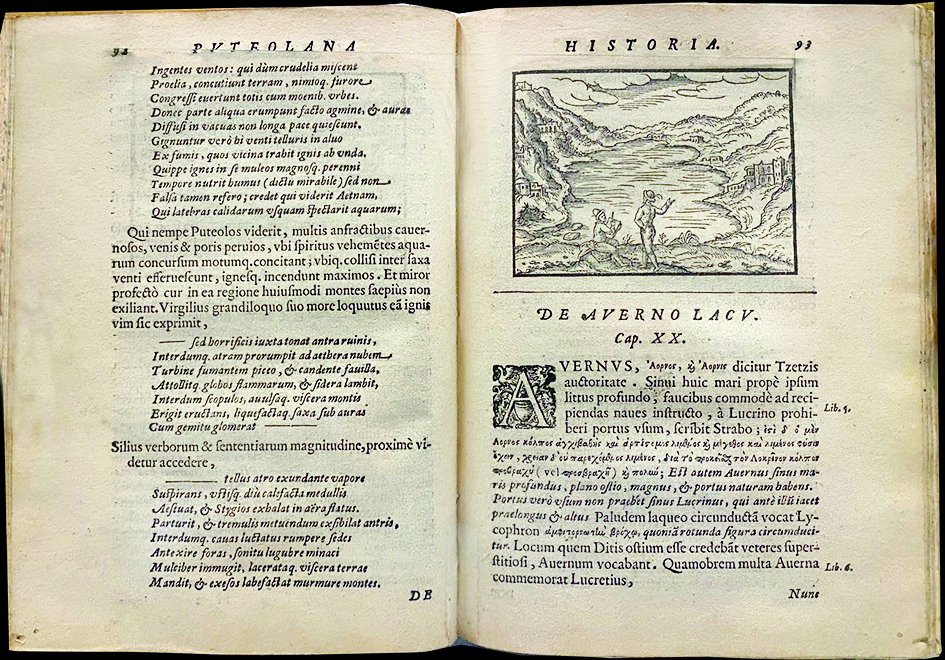 92 PVTEOLANA
Ingentes ventos: qui dùm crudelia miscent
Proelia, concutiunt terram, nimioq. furore
Congressi euertunt totis cum moenib. vrbes.
Donec parte aliqua erumpunt facto agmine, & auras
Diffusi in vacuas non longa pace quiescunt.
Gignuntur verò hi venti telluris in aluo
Ex fumis, quos vicina trahit ignis ab vnda.
Quippe ignes in se muleos magnosq. perenni
Tempore nutrit humus (dictu mirabile) sed non
Falsa tamen refero; credet qui viderit Aetnam,
Qui latebras calidarum vsquam spectarit aquarum;
Qui nempe Puteolos viderit, multis anfractibus cauer-
nosos, venis & poris peruios, vbi spiritus vehemẽtes aqua-
rum concursum motumq. concitant; vbiq. collisi inter saxa
venti efferuescunt, ignesq. incendunt maximos. Et miror
profectò cur in ea regione huiusmodi montes saepiùs non
exiliant. Virgilius grandiloquo suo more loquutus eã ignis
vim sic exprimit,
— sed horrificis iuxta tonat antra ruinis,
Interdumq. atram prorumpit ad aethera nubem
Turbine fumantem piceo, & candente fauilla,
Attollitq. globos flammarum, & sidera lambit,
Interdum scopulos, auulsaq. viscera montis
Erigit eructans, liquefactaq. saxa sub auras
Cum gemitu glomerat —
Silius verborum & sententiarum magnitudine, proximè vi-
detur accedere,
— tellus atro exundante vapore
Suspirans, vstisq. diù calefacta medullis
Aestuat, & Stygios exhalat in aëra flatus.
Parturit, & tremulis metuendum exsibilat antris,
Interdumq. cauas luctatus rumpere sedes
Antexire foras, sonitu lugubre minaci
Mulciber immugit, lacerataq. viscera terrae
Mandit, & exesos labefactat murmure montes.
DE
HISTORIA. 93
DE AVERNO LACV.
Cap. XX.
AVERNVS, Ἄορνος, & Ἄορνις dicitur Tzetzis
auctoritate. Sinui huic mari propè ipsum
littus profundo, faucibus commodè ad reci-
piendas naues instructo, à Lucrino prohi-
beri portus vsum, scribit Strabo; ἐστὶ δ' ὁ μὲν
Lib. 5.
Ἄορνος κόλπος ἀγχιβαθὴς καὶ
(vel
) Est autem Auernus sinus ma-
ris profundus, plano ostio, magnus, & portus naturam habens.
Portus verò vsum non praebet sinus Lucrinus, qui ante illũ iacet
praelongus & altus Paludem laqueo circunductã vocat Ly-
cophron quoniã rotunda figura circunduci-
tur. Locum quem Ditis ostium esse credebãt veteres super-
stitiosi, Auernum vocabant. Quamobrem multa Auerna
commemorat Lucretius,
Lib. 6.
Nunc